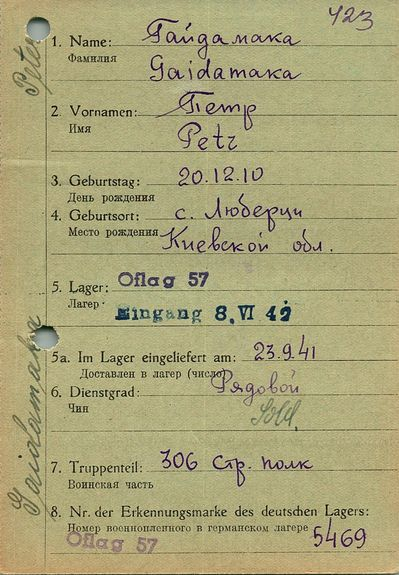 423
1. Name: Гайдамака
Фамилия
Gaidamaka
2. Vornamen: Петр
Имя
Petr
3. Geburtstag: 20.12.10
День рождения
4. Geburtsort: с. Люберци
Место рождения Киевской обл.
5. Lager: Oflag 57
Лагер: Eingang 8. VI 42
5a. Im Lager eingeliefert am: 23.9.41
Доставлен в лагер (число)
6. Dienstgrad: Рядовой
Чин Sold.
7. Truppenteil: 306 Стр. полк
Воинская часть
8. Nr. der Erkennungsmarke des deutschen Lagers:
Номер военнопленного в германском лагере 5469
Oflag 57
Gaidamaka
Peter